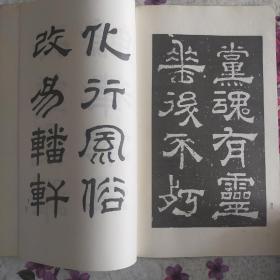 黨魂有靈
垂後不朽
化行風俗
改易轓軒